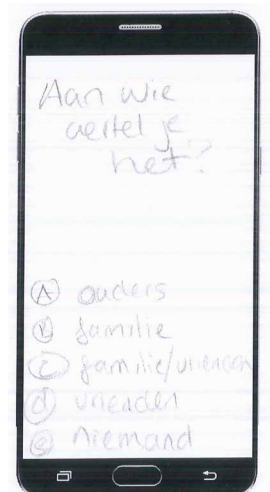 Aan wie
vertel je
het?
A ouders
B familie
C familie/vrienden
d vrienden
e niemand